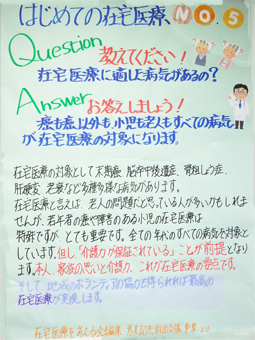 はじめての在宅医療 NO.5
Question 教えてください！
在宅医療に適した病気があるの？
Answer お答えしましょう！
癌も癌以外も小児も老人もすべての病気
が在宅医療の対象になります。
在宅医療の対象として末期癌、脳卒中後遺症、骨粗しょう症、
肝硬変、老衰など多種多様な病気があります。
在宅医療と言えば、老人の問題だと思っている人が多いかもしれま
せんが、若年者の癌や障害のある小児の在宅医療は
特殊ですが とても重要です。全ての年令のすべての病気を対象と
しています。但し「介護力が保証されている」ことが前提となり
ます。本人、家族の思いと介護力、これが在宅医療の要点です。
そして、地域のボランティアの協力も得られれば最高の
在宅医療が実現します。
在宅医療を考える